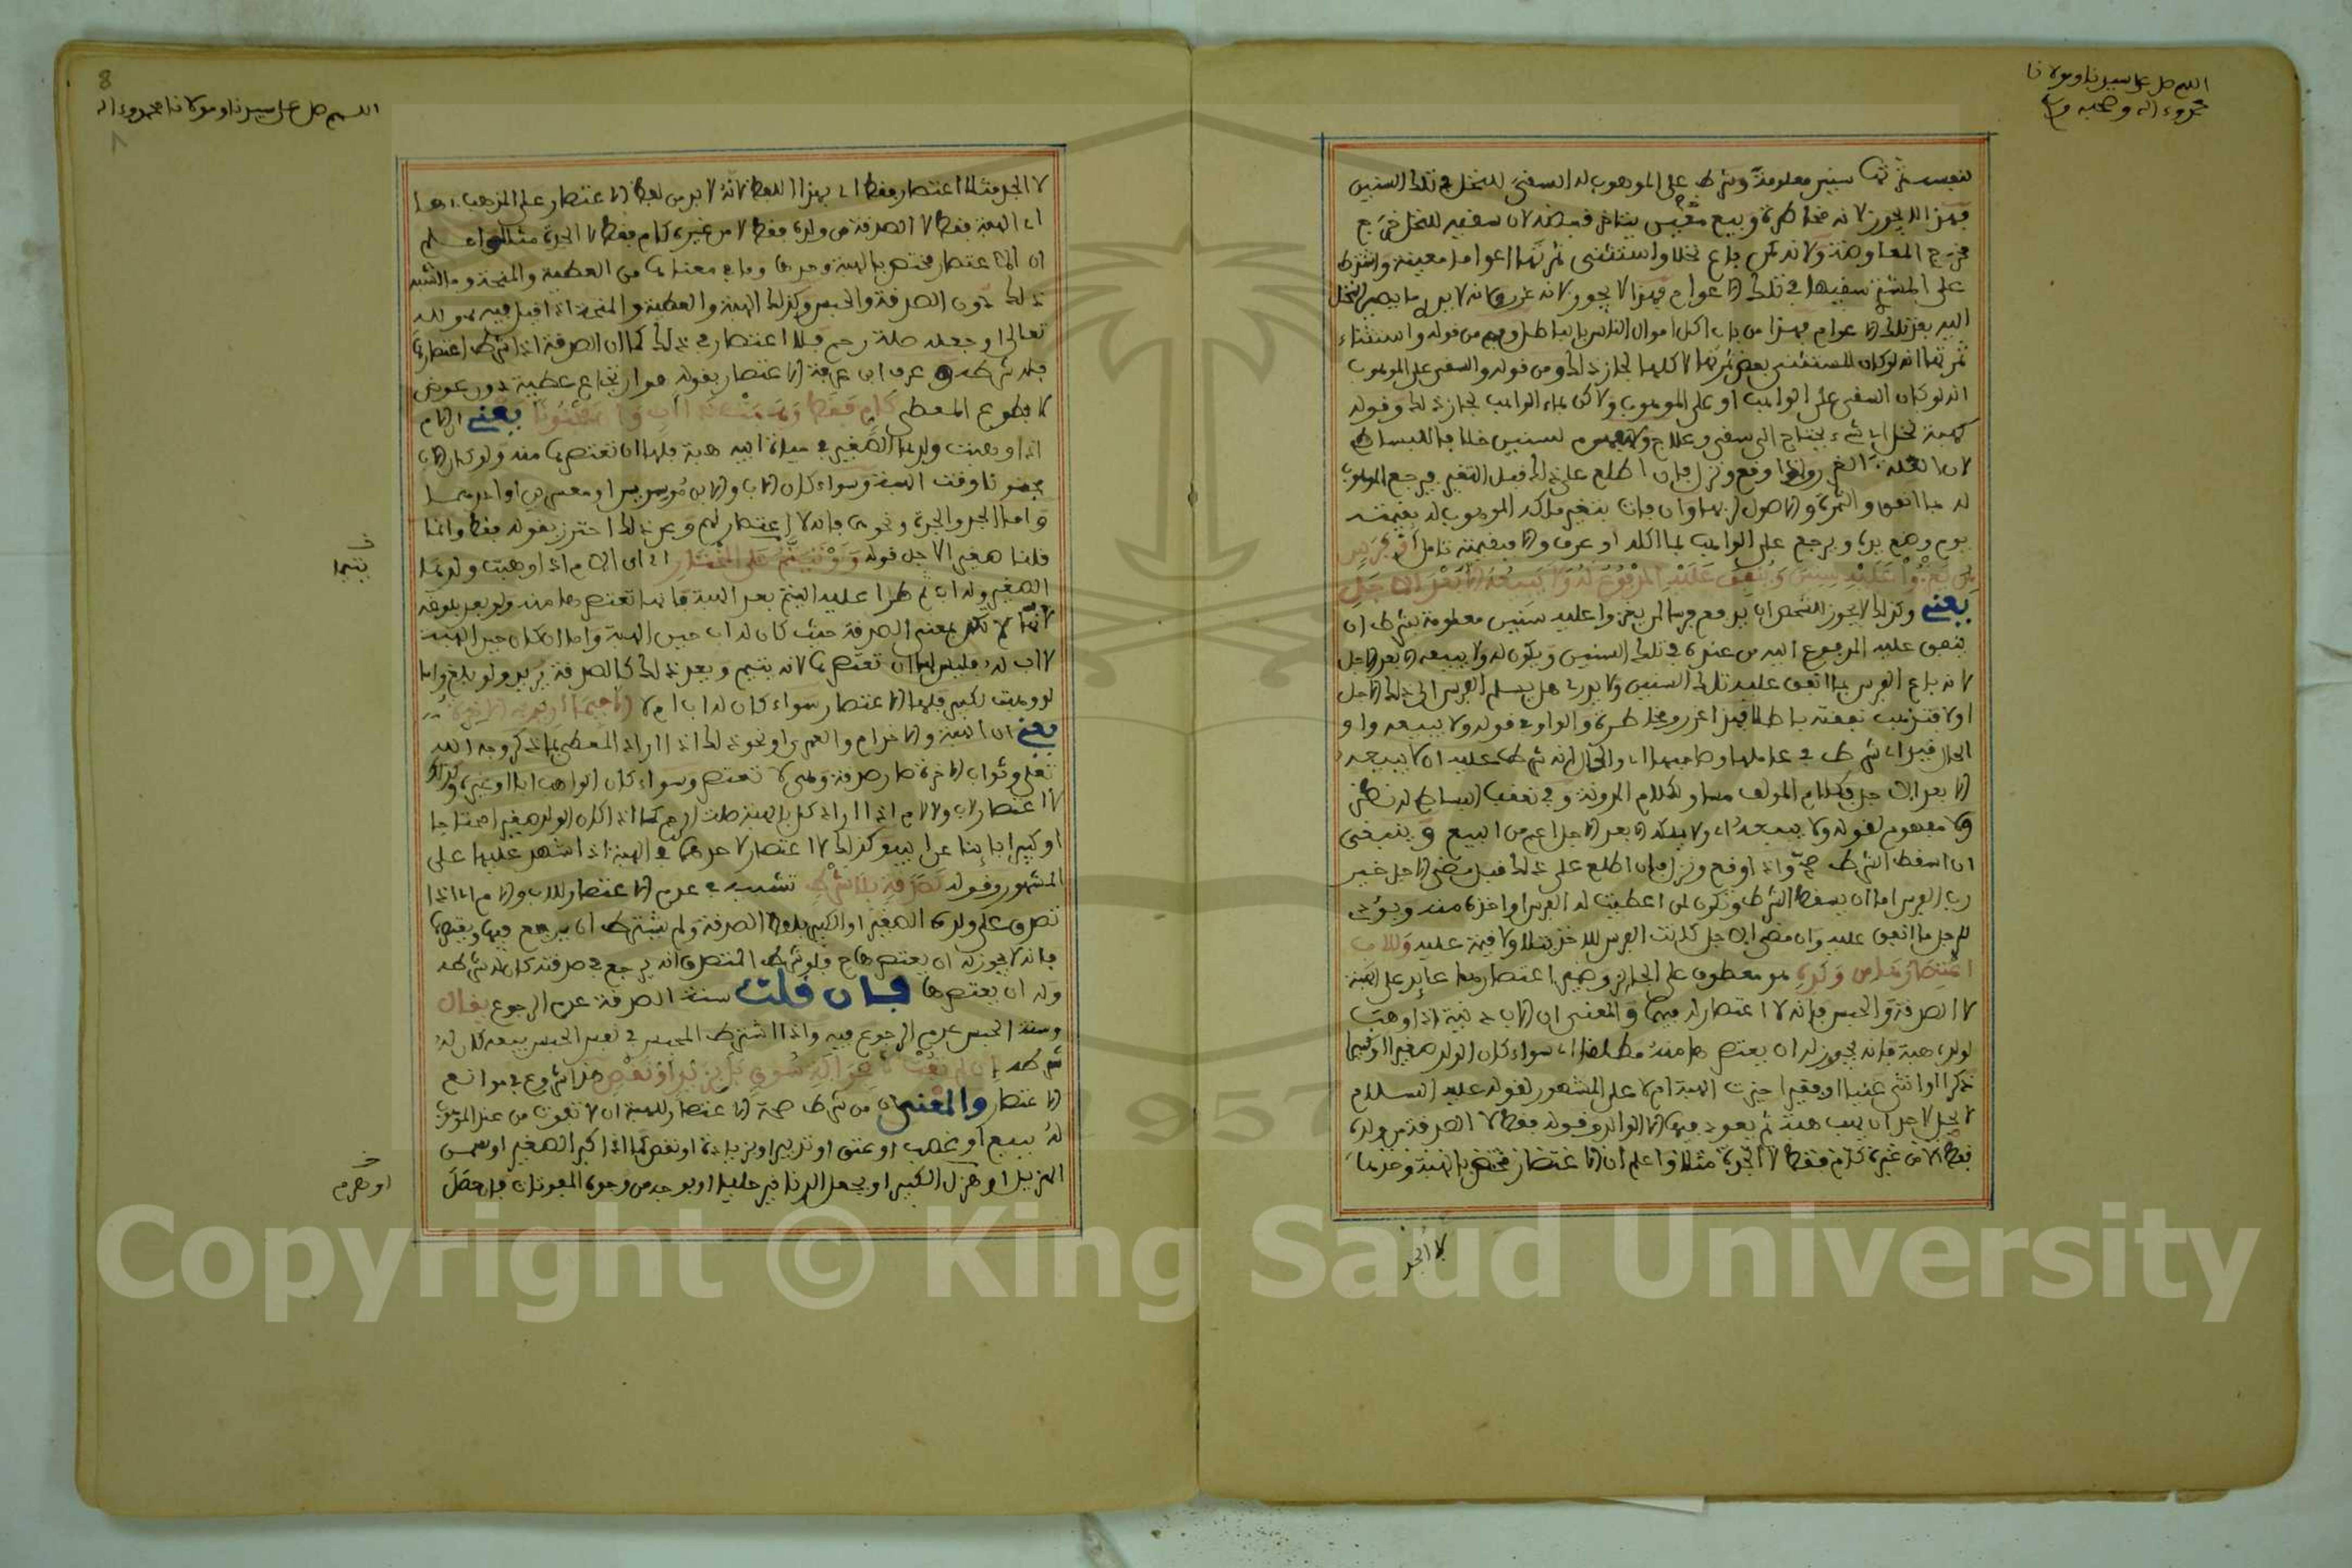 اللهم صل على سيدنا ومولانا
محمد وءاله وصحبه وسلم
لنفسه ثمرتها سنين معلومة وشرط على الموهوب له السقي للنخل في تلك السنين
فهذا لا يجوز لانه مخاطرة وبيع معين يتاخر قبضه لان سقيه للنخل خرج
مخرج المعاوضة ولانه كمن باع نخلا واستثنى ثمرتها اعواما معينة واشترط
على المشتري سقيها في تلك الاعوام فهذا لا يجوز لانه غرر لانه لا يدري ما يصير النخل
اليه بعد تلك الاعوام فهذا من باب اكل اموال الناس بالباطل وفهم من قوله واستثناء
ثمرتها انه لو كان المستثنى بعض ثمرتها لا كلها لجاز ذلك ومن قوله والسقي على الموهوب
انه لو كان السقي على الواهب او على الموهوب ولاكن بماء الواهب لجاز ذلك وقوله
كهبة نخل اي شيء يحتاج الى سقي وعلاج ولا مفهوم لسنين خلافا للبساطي
لان العلة الغرر واذا وقع ونزل فان اطلع على ذلك قبل التغير فيرجع الموهوب
له بما انفق والثمرة والاصول لربها وان فات بتغير ملكه الموهوب له بقيمته
يوم وضع يده ويرجع على الواهب بما اكله او عرف والا فبقيمته تامل او فرس
لمن يغزو عليه سنين وينفق عليه المدفوع له ولا يبيعه الا بعد الاجل
يعني وكذلك لا يجوز للشخص ان يدفع فرسا لمن يغزوا عليه سنين معلومة بشرط ان
ينفق عليه المدفوع اليه من عنده في تلك السنين ويكون له ولا يبيعه الا بعد الاجل
لانه باع الفرس بما انفق عليه تلك السنين ولا يدري هل يسلم الفرس الى ذلك الاجل
اولا فتذهب نفقته باطلا فهذا غرر ومخاطرة والواو في قوله ولا يبيعه واو
الحال قيد اي شرط في عاملها وصاحبها اي والحال انه شرط عليه ان لا يبيعه
الا بعد الاجل فكلام المولف مساو لكلام المدونة وفي تعقب البساطي له نظر
ولا مفهوم لقوله ولا يبيعه اي ولا يملكه الا بعد الاجل اعم من البيع وينبغي
ان اسقط الشرط صح واذا وقع ونزل فان اطلع على ذلك قبل مضي الاجل خير
رب الفرس اما ان يسقط الشرط وتكون لمن اعطيت له الفرس او اخذه منه ويودي
للرجل ما انفق عليه وان مضى الاجل كانت الفرس للاخذ بتلا ولا قيمة عليه وللاب
اعتصارها من ولده هو معطوف على الجائز وضمير اعتصارها عائد على الهبة
لا الصدقة والحبس فانه لا اعتصار له فيها والمعنى ان الاب دنية اذا وهب
لولده هبة فانه يجوز له ان يعتصرها منه مطلقا اي سواء كان الولد صغيرا او كبيرا
ذكرا او انثى غنيا او فقيرا حيزت الهبة ام لا على المشهور لقوله عليه السلام
لا يحل لاحد ان يهب هبة ثم يعود فيها الا الوالد وقوله فقط لا الصدقة من ولده
فقط لا من غيره كام فقط لا الجدة مثلا واعلم ان الاعتصار مختص بالهبة وحدها
لا الجد
8
٨
اللهم صل على سيدنا ومولانا محمد وءاله
لا الجد مثلا اعتصار فقط اي بهذا اللفظ لانه لا بد من لفظ الاعتصار على المذهب
اي الهبة فقط لا الصدقة من ولده فقط لا من غيره كام فقط لا الجدة مثلا واعلم
ان الاعتصار مختص بالهبة وحدها وما في معناها من العطية والمنحة وما اشبه
ذلك دون الصدقة والحبس وكذلك الهبة والعطية والمنحة اذا قيل فيه هو لله
تعالى او جعله صلة رحم فلا اعتصار في ذلك كما ان الصدقة اذا شرط اعتصارها
فله شرطه وعرف ابن عرفة الاعتصار بقوله هو ارتجاع عطية دون عوض
لا بطوع المعطى كام فقط وهبت ذا اب وان مجنونا يعني ان الام
اذا وهبت ولدها الصغير في حياة ابيه هبة فلها ان تعتصرها منه ولو كان الاب
مجنونا وقت الهبة وسواء كان الاب والابن موسرين او معسرين او احدهما
واما الجد والجدة ونحوهما فانه لا اعتصار لهم وعن ذلك احترز بقوله فقط وانما
قلنا صغيرا لاجل قوله ولو تيتم على المختار اي ان الام اذا وهبت ولدها
يتيما
الصغير وله اب ثم طرا عليه اليتم بعد الهبة فانها تعتصرها منه ولو بعد بلوغه
لانها لم تكن بمعنى الصدقة حيث كان له اب حين الهبة واما ان كان حين الهبة
لا اب له فليس لها ان تعتصرها لانه يتيم ويعد ذلك كالصدقة يريد ولو بلغ واما
لو وهبت لكبير فلها الاعتصار سواء كان له اب ام لا الا فيما اريد به الاخرة
يعني ان الهبة والاخدام والعمرى ونحو ذلك اذا اراد المعطي بما ذكر وجه الله
تعالى وثواب الاخرة صار صدقة وهي لا تعتصر وسواء كان الواهب ابا او غيره وكذلك
لا اعتصار لاب ولا لام اذا اراد كل بالهبة صلة الرحم كما اذا كان الولد صغيرا محتاجا
او كبيرا بائنا عن ابيه وكذلك لا اعتصار لاحدهما في الهبة اذا اشهد عليها على
المشهور وقوله كصدقة بلا شرط تشبيه في عدم الاعتصار للاب والام اي اذا
تصدق على ولده الصغير او الكبير بلفظ الصدقة ولم يشترط ان يرجع فيها ويعتصرها
فانه لا يجوز له ان يعتصرها ح فلو شرط المتصدق انه يرجع في صدقته كان له شرطه
وله ان يعتصرها فان قلت سنة الصدقة عدم الرجوع يقال
وسنة الحبس عدم الرجوع فيه واذا اشترط المحبس في نفس الحبس بيعه كان له
شرطه ان لم تفت لا بحوالة سوق بل بزيد او نقص هذا شروع في موانع
الاعتصار والمعنى ان من شرط صحة الاعتصار للهبة ان لا تفوت من عند الموهوب
له ببيع او غصب او عتق او تدبير او بزيادة او نقص كما اذا كبر الصغير او سمن
الهزيل او هزل الكبير او يجعل الدنانير حليا او بوجه من وجوه المفوتات فان حصل
او هرم